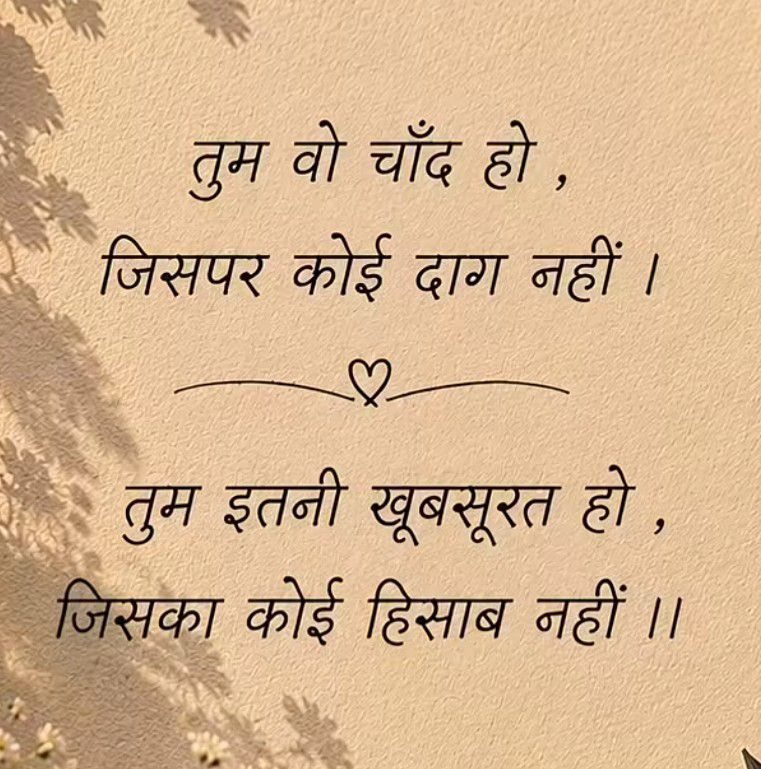 तुम वो चाँद हो ,
जिसपर कोई दाग नहीं ।
तुम इतनी खूबसूरत हो ,
जिसका कोई हिसाब नहीं ।।